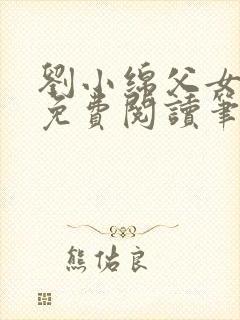 劉小綿父女
免費閱讀筆
熊佑良